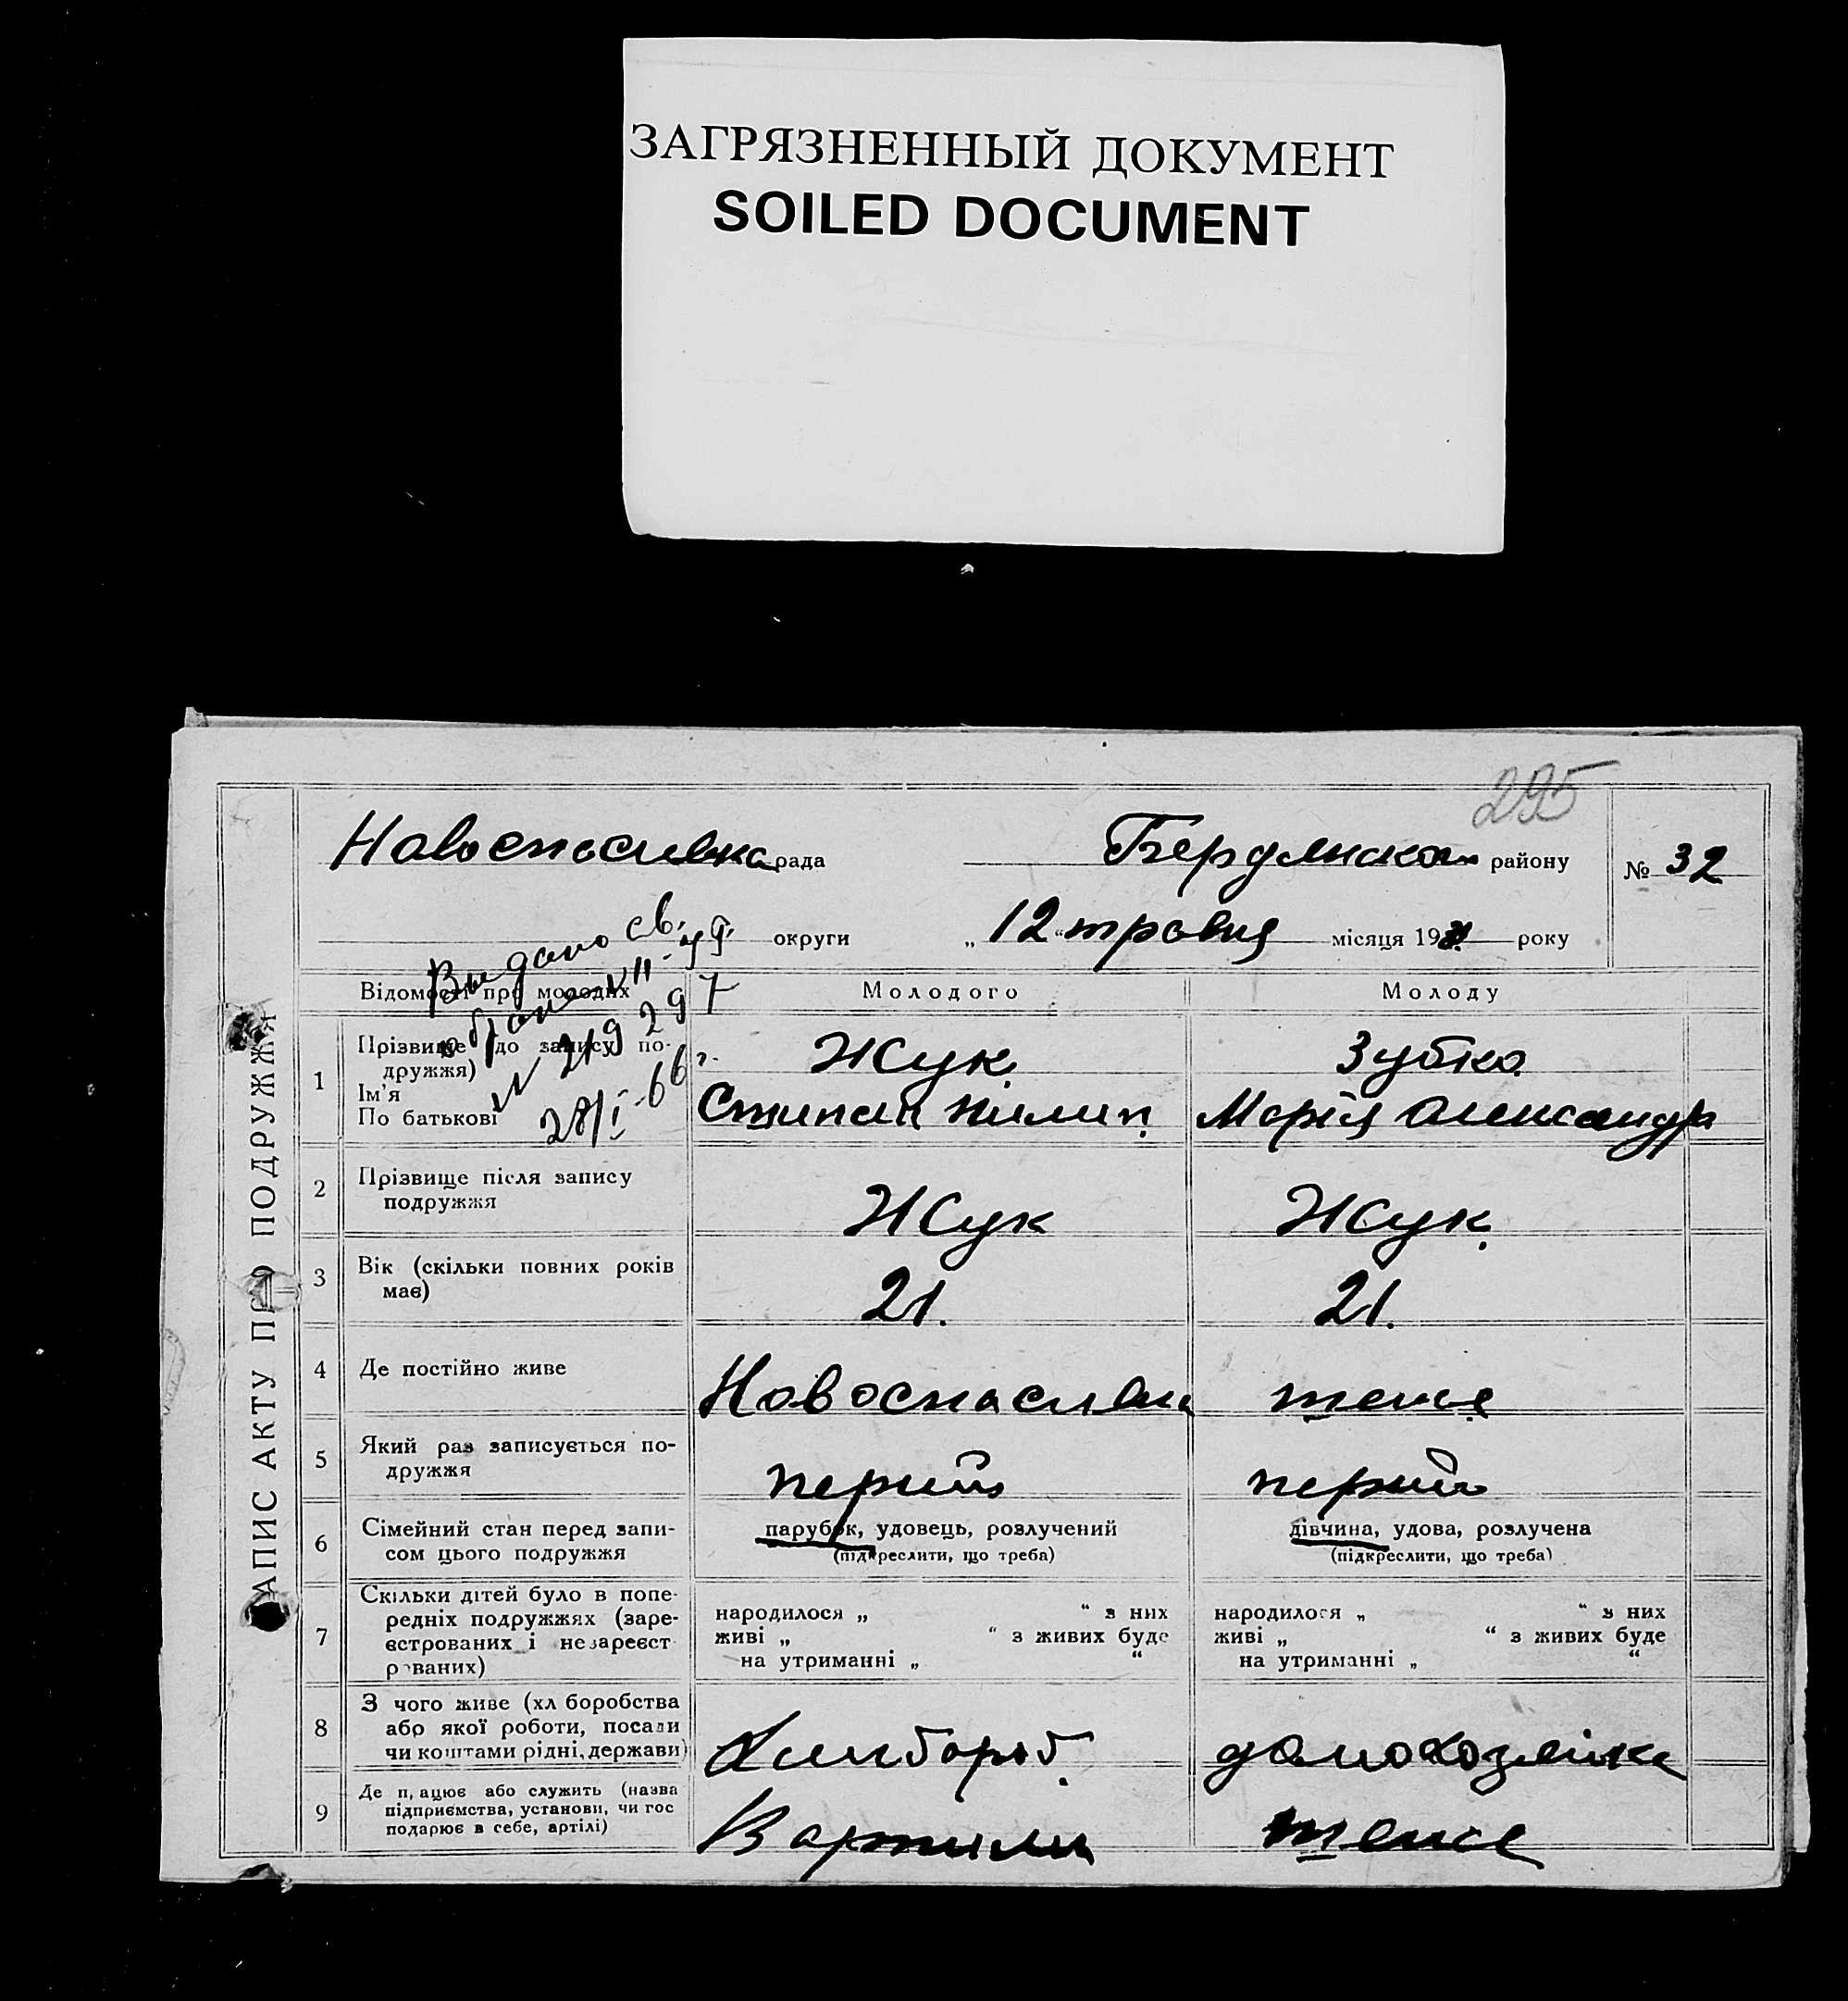 ЗАГРЯЗНЕННЫЙ ДОКУМЕНТ
SOILED DOCUMENT
295
Новоспасивка рада Бердянском району № 32
округи „ 12 “ травня місяця 19 року
Видано св.
28/I-66
Відомості про молодих Молодого Молоду
АПИС АКТУ ПРО ПОДРУЖЖЯ
1 Прізвище до запису по-
дружжя) Жук. Зубко
Ім'я
По батькові Стипан Пилип. Марія Александр
2 Прізвище після запису
подружжя Жук Жук.
3 Вік (скільки повних років
має) 21. 21.
4 Де постійно живе Новоспасивка теже
5 Який раз записується по-
дружжя перший перший
6 Сімейний стан перед запи-
сом цього подружжя
парубок, удовець, розлучений дівчина, удова, розлучена
(підкреслити, що треба) (підкреслити, що треба)
7 Скільки дітей було в попе-
редніх подружжях (заре-
єстрованих і незареєст
рованих)
народилося „ “ з них народилося „ “ з них
живі „ “ з живих буде живі „ “ з живих буде
на утриманні „ “ на утриманні „ “
8 З чого живе (хл боробства
або якої роботи, посади
чи коштами рідні, держави) домохозяйка
9 Де п, ацює або служить (назва
підприємства, установи, чи гос
подарює в себе, артілі) В артили теже